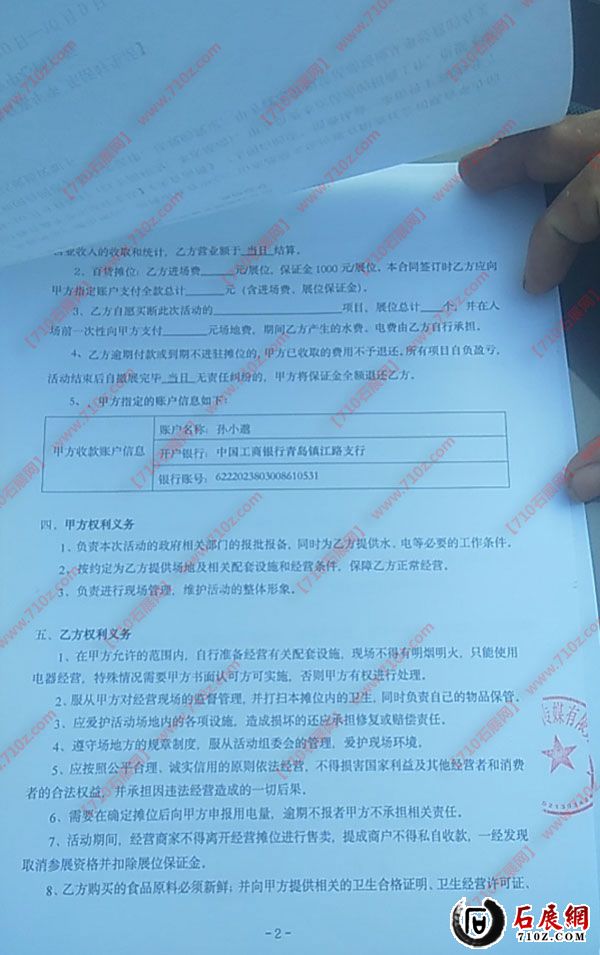 营业收入的收取和统计，乙方营业额于 当日 结算。
2、百货摊位：乙方进场费______元/展位，保证金 1000 元/展位。本合同签订时乙方应向
甲方指定账户支付全款总计______元（含进场费、展位保证金）。
3、乙方自愿买断此次活动的____________项目，展位总计____个，并在人
场前一次性向甲方支付______元场地费，期间乙方产生的水费、电费由乙方自行承担。
4、乙方逾期付款或到期不进驻摊位的，甲方已收取的费用不予退还。所有项目自负盈亏，
活动结束后自撤展完毕 当日 无责任纠纷的，甲方将保证金全额退还乙方。
5、、甲方指定的账户信息如下：
甲方收款账户信息
账户名称：孙小邈
开户银行：中国工商银行青岛镇江路支行
银行账号：6222023803008610531
四、甲方权利义务
1、负责本次活动的政府相关部门的报批报备，同时为乙方提供水、电等必要的工作条件。
2、按约定为乙方提供场地及相关配套设施和经营条件，保障乙方正常经营。
3、负责进行现场管理，维护活动的整体形象。
五、乙方权利义务
1、在甲方允许的范围内，自行准备经营有关配套设施，现场不得有明烟明火，只能使用
电器经营，特殊情况需要甲方书面认可方可实施，否则甲方有权进行处理。
2、服从甲方对经营现场的监督管理，并打扫本摊位内的卫生，同时负责自己的物品保管。
3、应爱护活动场地内的各项设施，造成损坏的还应承担修复或赔偿责任。
4、遵守场地方的规章制度，服从活动组委会的管理，爱护现场环境。
5、应按照公平合理、诚实信用的原则依法经营，不得损害国家利益及其他经营者和消费
者的合法权益，并承担因违法经营造成的一切后果。
6、需要在确定摊位后向甲方申报用电量，逾期不报者甲方不承担相关责任。
7、活动期间，经营商家不得离开经营摊位进行售卖，提成商户不得私自收款，一经发现
取消参展资格并扣除展位保证金。
8、乙方购买的食品原料必须新鲜；并向甲方提供相关的卫生合格证明、卫生经营许可证、
- 2 -
传媒有限
【710石展网】www.710z.com
石展網
710Z.COM